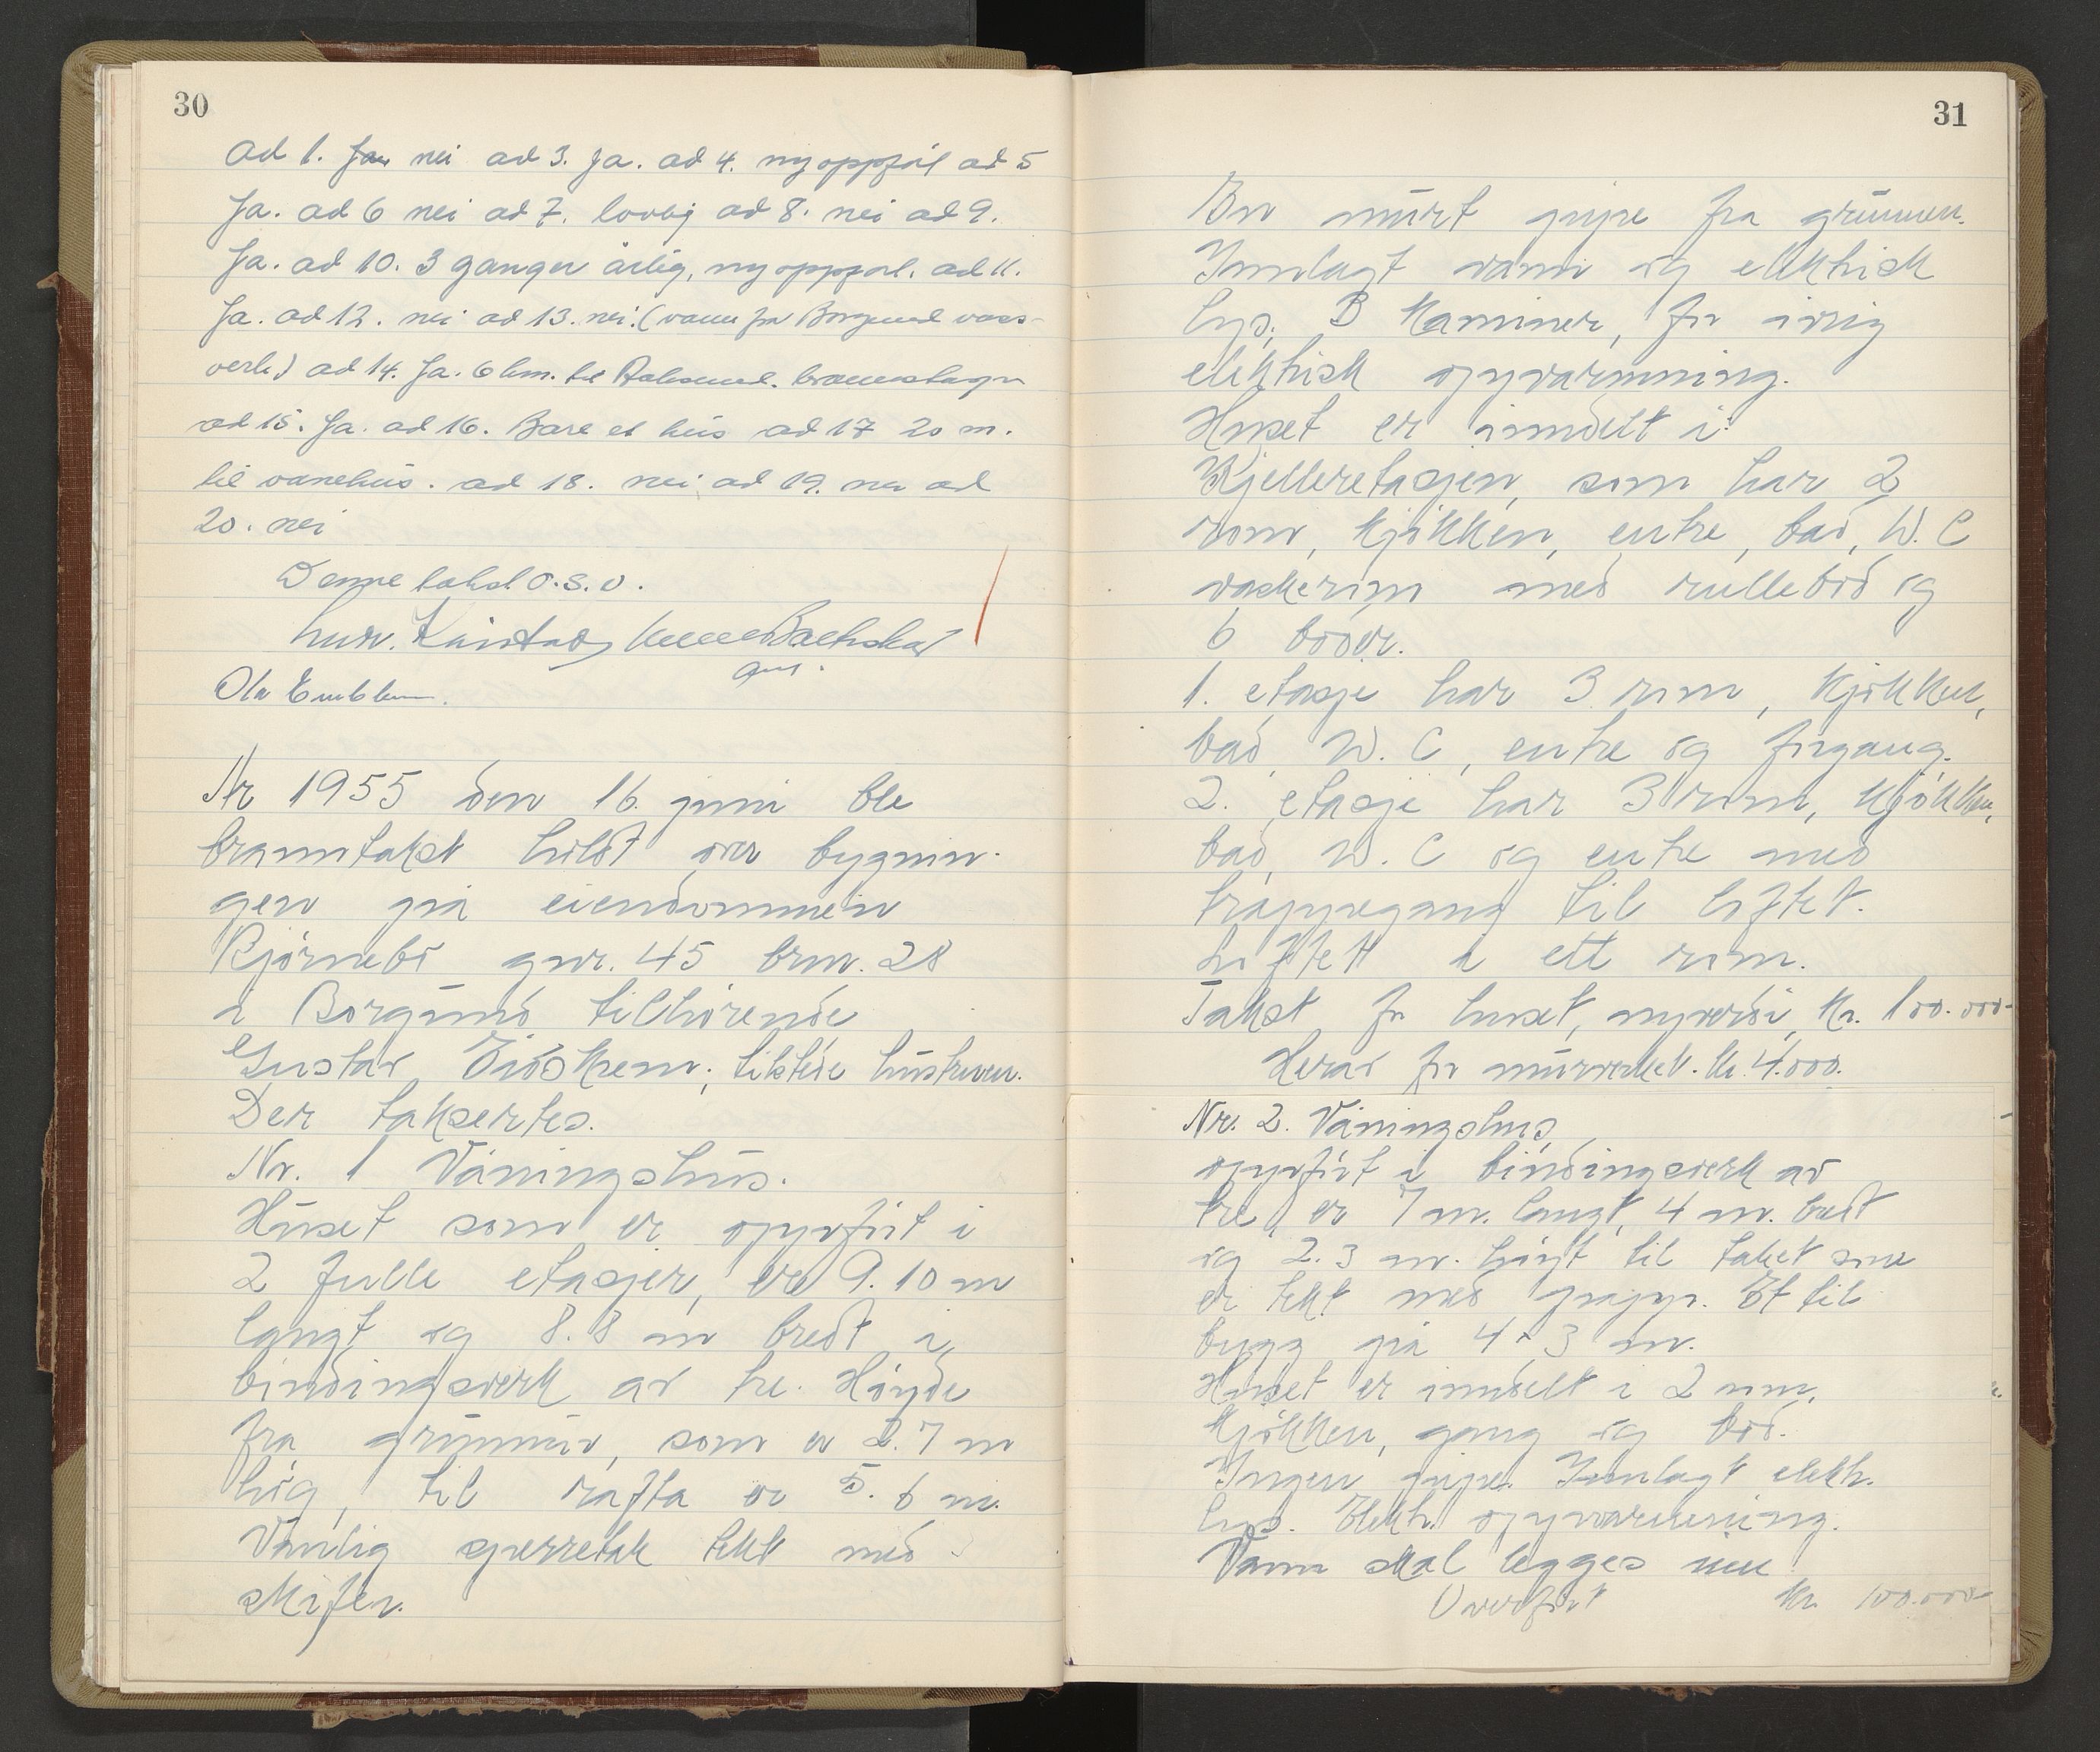 30
ad 1. nei ad 3. Ja. ad 4. nyoppført ad 5
Ja. ad 6 nei ad 7. lovlig ad 8. nei ad 9.
Ja. ad 10. 3 ganger årlig, nyoppført. ad 11.
Ja. ad 12. nei ad 13. nei. (vann fra Borgund vass-
verk) ad 14. Ja. 6 km. til Aalesund.
ad 15. Ja. ad 16. Bare et hus ad 17 20 m.
til vånehus. ad 18. nei ad 19. nei ad
20. nei
Denne takst O.S.V.
Ola Emblem.
År 1955 den 16. juni ble
branntakst holdt over bygnin-
gen på eiendommen
Bjørnebo gnr. 45 brn. 28
i Borgund tilhørende
Gustav Eidskrem; tilstede hustruen.
Der taksertes.
Nr. 1 Våningshus.
Huset som er oppført i
2 fulle etasjer, er 9.10 m
langt og 8.8 m bredt i
bindingsverk av tre. Høyde
fra grunmur, som er 2.7 m
høg, til rafta er 5.6 m.
Vanlig sperretak tekt med
skifer.
31
En murt pipe fra grunnen.
Innlagt vann og elektrisk
lys. 3 kaminer, for øvrig
elektrisk oppvarmning.
Huset er inndelt i:
Kjelleretasjen, som har 2
rom, kjøkken, entre, bad, W.C
vaskerom med rullebod og
6 boder.
1. etasje har 3 rom, kjøkken,
bad, W.C, entre og forgang.
2. etasje har 3 rom, kjøkken,
bad, W.C og entre med
trappegang til loftet.
Loftet i ett rom.
Takst for huset, nyverdi, kr. 100.000-
Herav for murverket. kr. 4.000.
Nr. 2. Våningshus
oppført i bindingsverk av
tre, er 7 m. langt, 4 m. bredt
og 2.3 m. høgt til taket som
er tekt med papp. Et til
bygg på 4 × 3 m.
Huset er inndelt i 2 rom,
kjøkken, gang og bod.
Ingen pipe. Innlagt elektr.
lys. Elektr. oppvarmning.
Vann skal legges inn
Overført kr. 100.000-